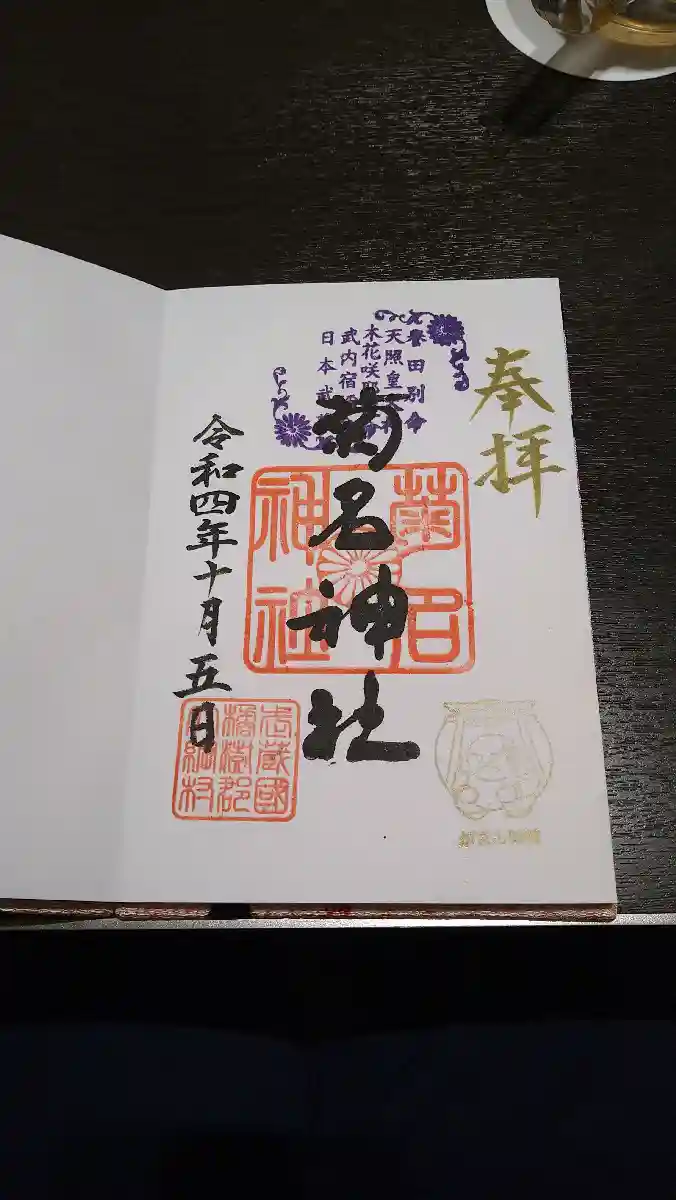 奉拝
誉田別命
天照皇大神
木花咲耶姫命
武内宿禰命
日本武尊
菊名神社
菊名
神社
令和四年十月五日
武蔵國
橘樹郡